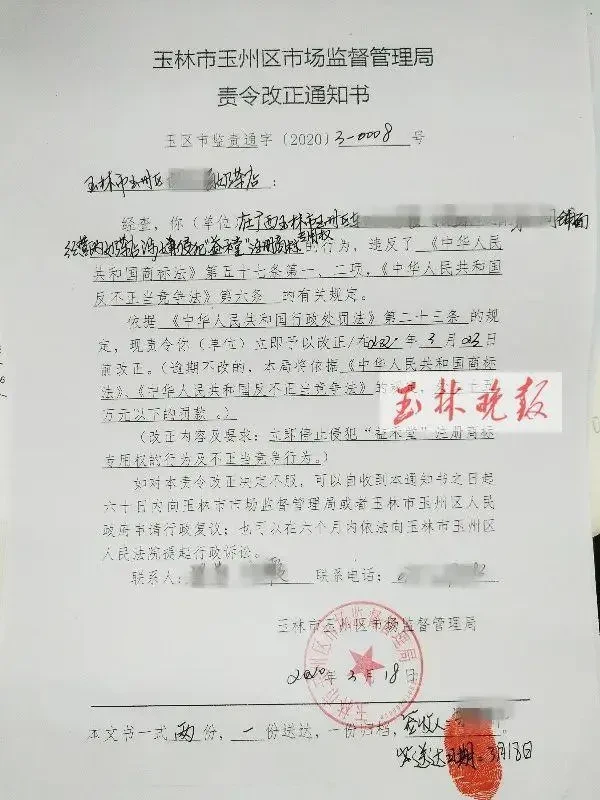 玉林市玉州区市场监督管理局
责令改正通知书
玉区市监责通字〔2020〕3-0008号
玉林市玉州区 奶茶店：
经查，你（单位）在广西玉林市玉州区 铺面
经营的奶茶店涉嫌侵犯“益禾堂”注册商标专用权的行为，违反了《中华人民
共和国商标法》第五十七条第一、二项，《中华人民共和国
反不正当竞争法》第六条 的有关规定。
依据《中华人民共和国行政处罚法》第二十三条的规
定，现责令你（单位）立即予以改正/在2020年3月23日
前改正。（逾期不改的，本局将依据《中华人民共和国商标
法》、《中华人民共和国反不正当竞争法》的
万元以下的罚款。）
玉林晚报
（改正内容及要求：立即停止侵犯“益禾堂”注册商标
专用权的行为及不正当竞争行为。）
如对本责令改正决定不服，可以自收到本通知书之日起
六十日内向玉林市市场监督管理局或者玉林市玉州区人民
政府申请行政复议；也可以在六个月内依法向玉林市玉州区
人民法院提起行政诉讼。
联系人： 联系电话：
玉林市玉州区市场监督管理局
2020年3月18日
玉林市玉州区市场监督管理局
本文书一式两份，一份送达，一份归档，签收人：
送达日期：3月18日